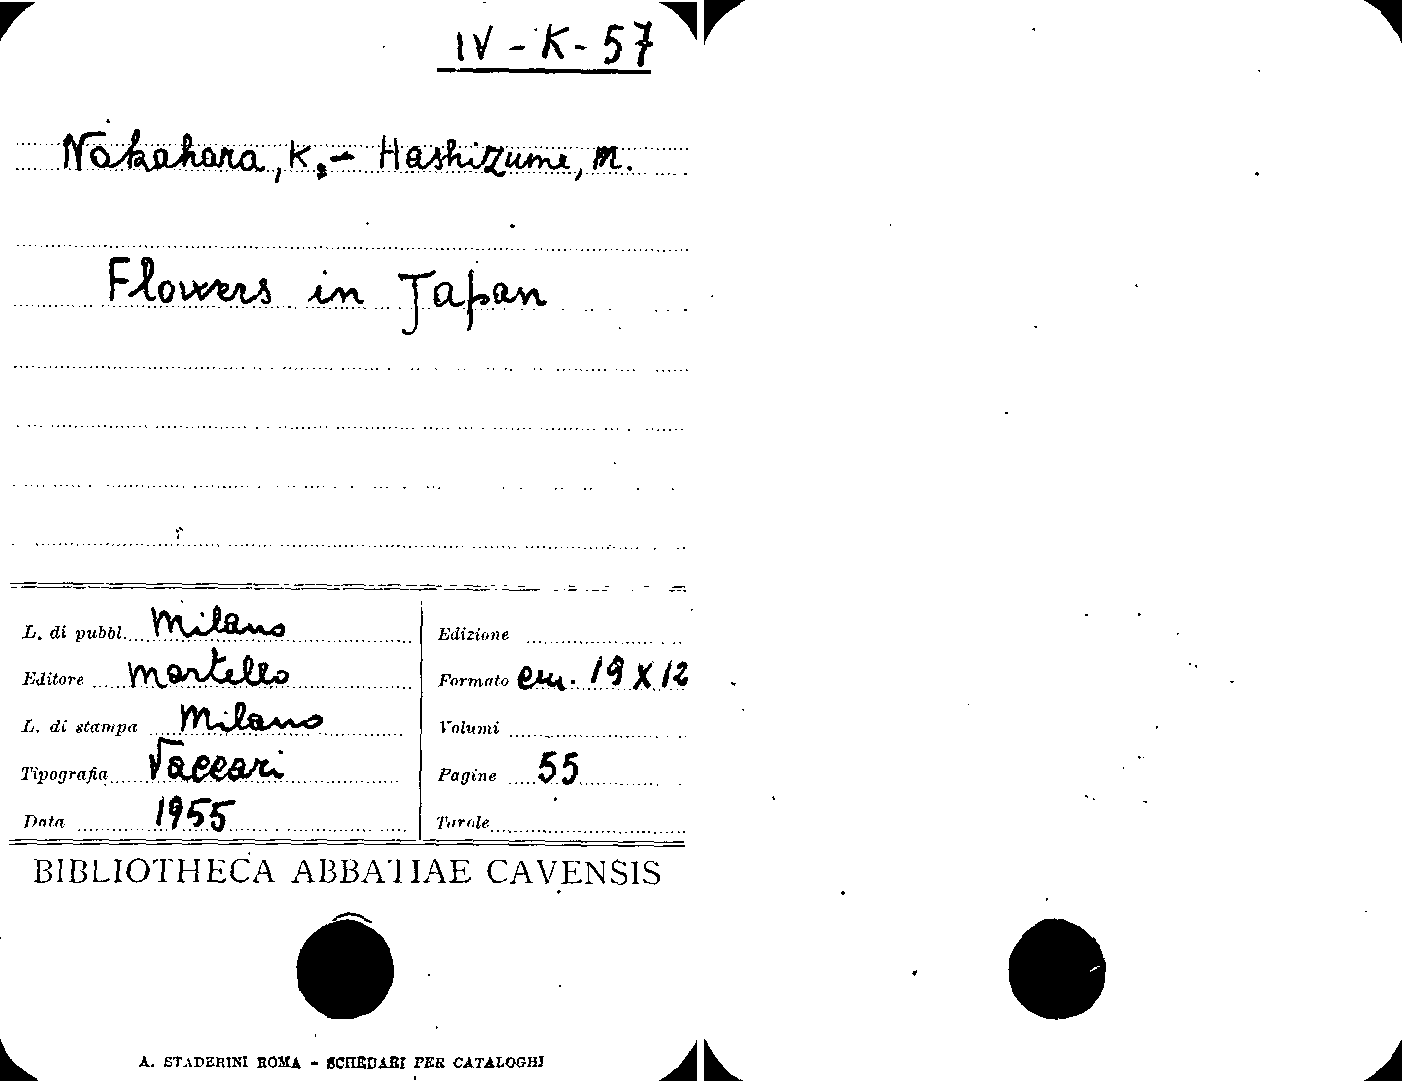 IV - K - 57
Nakahara, K. - Hashizume, M.
Flowers in Japan
L. di pubbl. Milano
Editore Martello
L. di stampa Milano
Tipografia Vaccari
Data 1955
Edizione
Formato cm. 19 X 12
Volumi
Pagine 55
Tavole
BIBLIOTHECA ABBATIAE CAVENSIS
A. STADERINI ROMA - SCHEDARI PER CATALOGHI